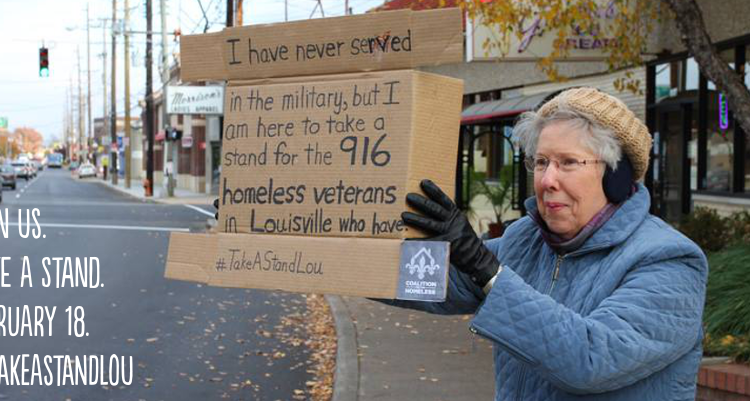 I have never served
in the military, but I
am here to take a
stand for the 916
homeless veterans
in Louisville who have.
#TakeAStandLou
COALITION
HOMELESS
Morrison's
LADIES APPAREL
N US.
E A STAND.
RUARY 18.
AKEASTANDLOU